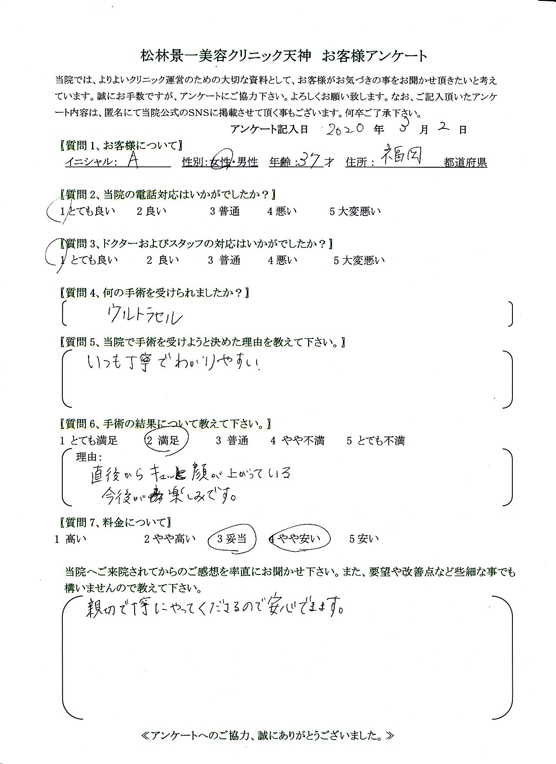 松林景一美容クリニック天神 お客様アンケート
当院では、よりよいクリニック運営のための大切な資料として、お客様がお気づきの事をお聞かせ頂きたいと考え
ています。誠にお手数ですが、アンケートにご協力下さい。よろしくお願い致します。なお、ご記入頂いたアンケ
ート内容は、匿名にて当院公式のSNSに掲載させて頂く事もございます。何卒ご了承下さい。
アンケート記入日 2020 年 3 月 2 日
【質問 1、お客様について】
イニシャル: A 性別:女性・男性 年齢:37才 住所: 福岡 都道府県
【質問 2、当院の電話対応はいかがでしたか?】
1 とても良い 2 良い 3 普通 4 悪い 5 大変悪い
【質問 3、ドクターおよびスタッフの対応はいかがでしたか?】
1 とても良い 2 良い 3 普通 4 悪い 5 大変悪い
【質問 4、何の手術を受けられましたか?】
ウルトラセル
【質問 5、当院で手術を受けようと決めた理由を教えて下さい。】
いつも丁寧でわかりやすい
【質問 6、手術の結果について教えて下さい。】
1 とても満足 2 満足 3 普通 4 やや不満 5 とても不満
理由:
直後からキュッと顔が上がっている
今後が楽しみです。
【質問 7、料金について】
1 高い 2 やや高い 3 妥当 4 やや安い 5 安い
当院へご来院されてからのご感想を率直にお聞かせ下さい。また、要望や改善点など些細な事でも
構いませんので教えて下さい。
親切で丁寧にやってくださるので安心できます。
≪アンケートへのご協力、誠にありがとうございました。≫